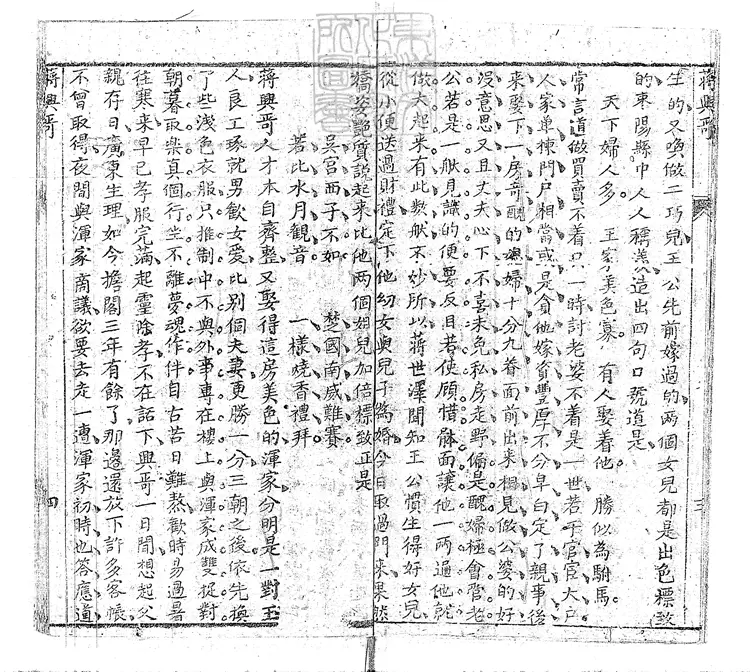 蔣興哥 三
生的又喚做二巧兒王公先前嫁過的两個女兒都是出色標致
的棗陽縣中人人稱羡造出四句口號道是
天下婦人多 王家美色寡 有人娶着他 勝似為駙馬
常言道做買賣不着只一時討老婆不着是一世若干官宦大户
人家单揀門户相當或是貪他嫁資豐厚不分皁白定了親事後
來娶下一房奇醜的媳婦十分九着面前出來相見做公婆的好
没意思又且丈夫心下不喜未免私房走野偏是醜婦極會管老
公若是一般見識的便要反目若使顧惜體面讓他一两遍他就
做大起來有此數般不妙所以蔣世澤聞知王公慣生得好女兒
從小便送過財禮定下他幼女與兒子為婚今日取過門來果然
嬌姿艷質説起來比他两個姐兒加倍標致正是
吳宮西子不如 楚國南威難賽
若比水月観音 一樣燒香禮拜
蔣興哥人才本自齊整又娶得這房美色的渾家分明是一對玉
人良工琢就男歡女愛比别個夫妻更勝一分三朝之後依先換
了些淺色衣服只推制中不與外事專在樓上與渾家成雙捉對
朝暮取樂真個行坐不離夢魂作伴自古苦日難熬歡時易過暑
往寒來早已孝服完滿起靈除孝不在話下興哥一日間想起父
親存日廣東生理如今擔閣三年有餘了那邊還放下許多客帳
不曾取得夜間與渾家商議欲要去走一遭渾家初時也答應道
蔣興哥 四